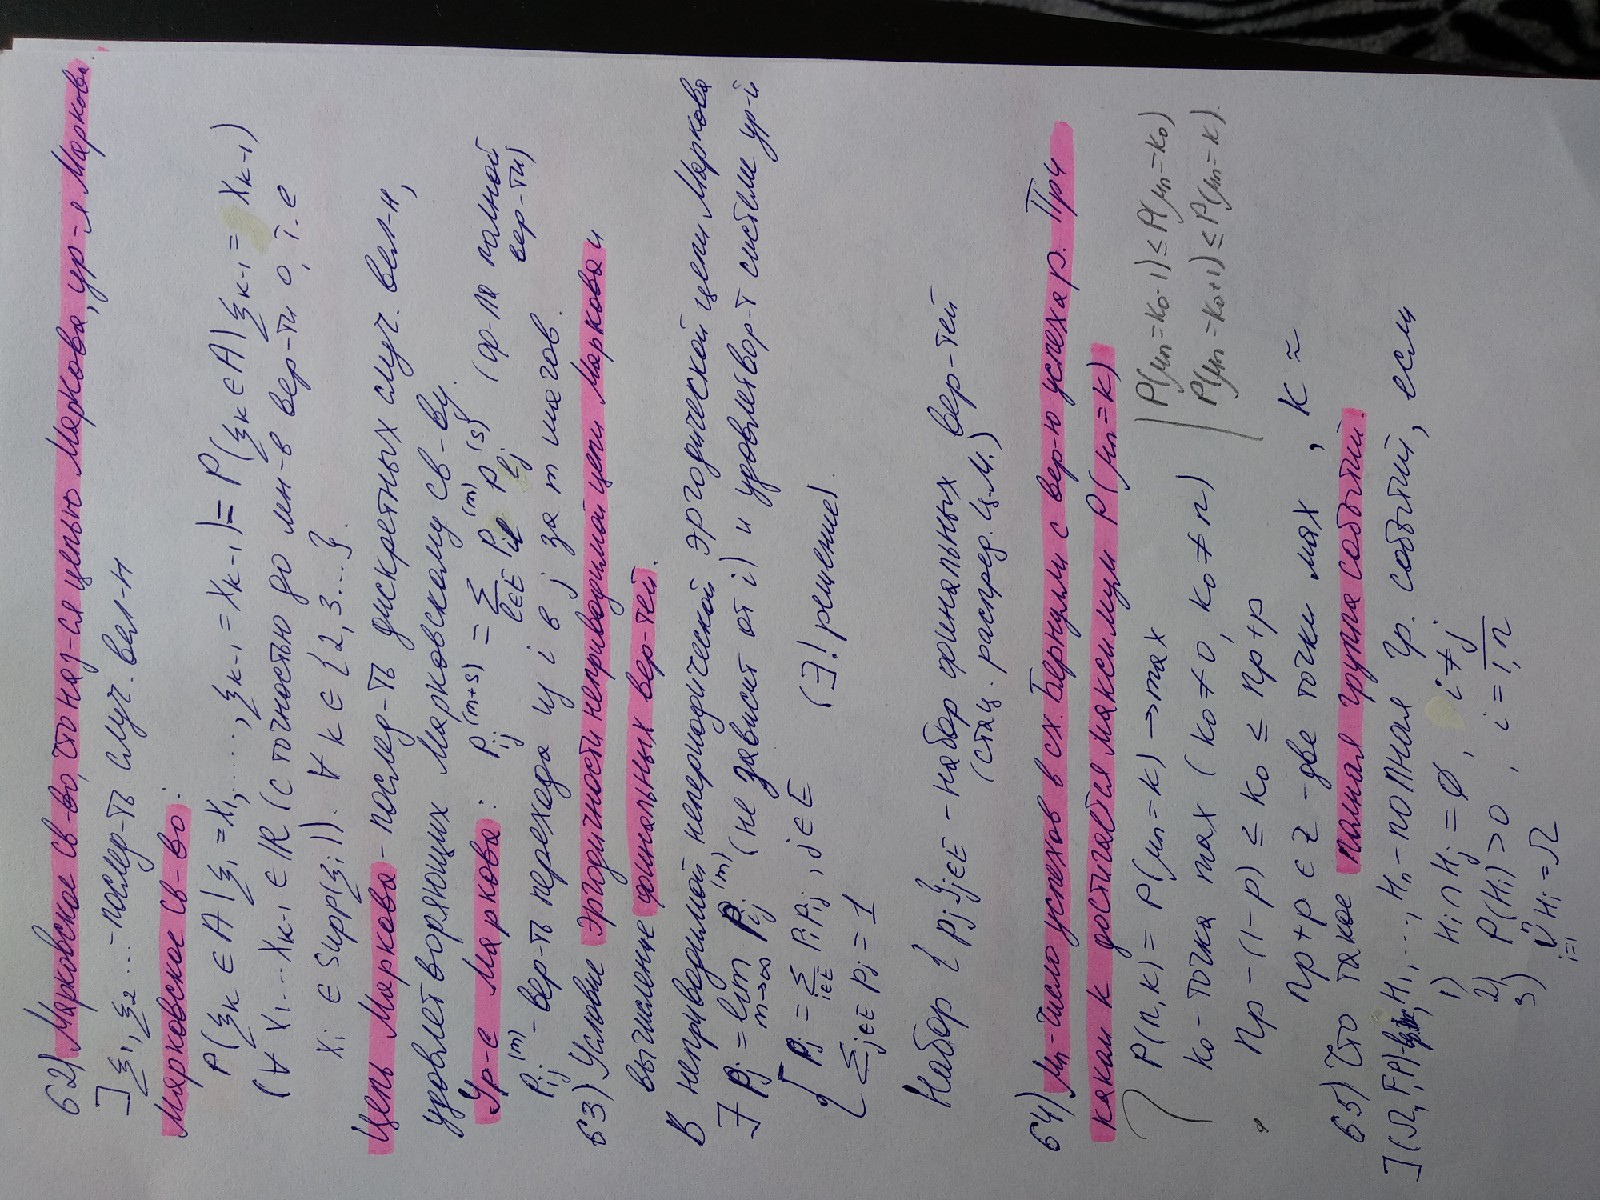 62) Марковское св-во, что наз-ся цепью Маркова, ур-я Маркова.
] ξ1, ξ2 ... - послед-ть случ. вел-н
Марковское св-во:
P(ξk ∈ A | ξ1 = x1, ..., ξk-1 = xk-1) = P(ξk ∈ A | ξk-1 = xk-1)
(∀ x1 ... xk-1 ∈ ℝ (с точностью до мн-в вер-ти 0, т.е
xi ∈ supp(ξi)). ∀ k ∈ {2, 3...}
Цепь Маркова - послед-ть дискретных случ. вел-н,
удовлетворяющих Марковскому св-ву.
Ур-е Маркова: Pij^(m+s) = Σ l∈E Pil^(m) Plj^(s) (ф-ла полной вер-ти)
Pij^(m) - вер-ть перехода из i в j за m шагов.
63) Условие эргодичности неприводимой цепи Маркова и
вычисление финальных вер-тей.
В неприводимой непериодической эргодической цепи Маркова
∃ Pj = lim m→∞ Pij^(m) (не зависит от i) и удовлетвор-т системе ур-й
{ Pj = Σ i∈E Pi Pij, j∈E
Σ j∈E Pj = 1 (∃! решение)
Набор {Pj} j∈E - набор финальных вер-тей
(стац. распред. Ц.М.)
64) μn - число успехов в сх. Бернулли с вер-ю успеха p. При
каком k достигается максимум P(μn = k)
P(n, k) = P(μn = k) → max
k0 - точка max (k0 ≠ 0, k0 ≠ n)
P(μn = k0-1) ≤ P(μn = k0)
P(μn = k0+1) ≤ P(μn = k)
np - (1-p) ≤ k0 ≤ np + p
np + p ∈ Z - две точки max, k ≈
65) Что такое полная группа событий.
] (Ω, F, P) H1, ..., Hn - полная гр. событий, если
1) Hi ∩ Hj = ∅, i ≠ j
2) P(Hi) > 0, i = 1,n
3) ∪ i=1 n Hi = Ω